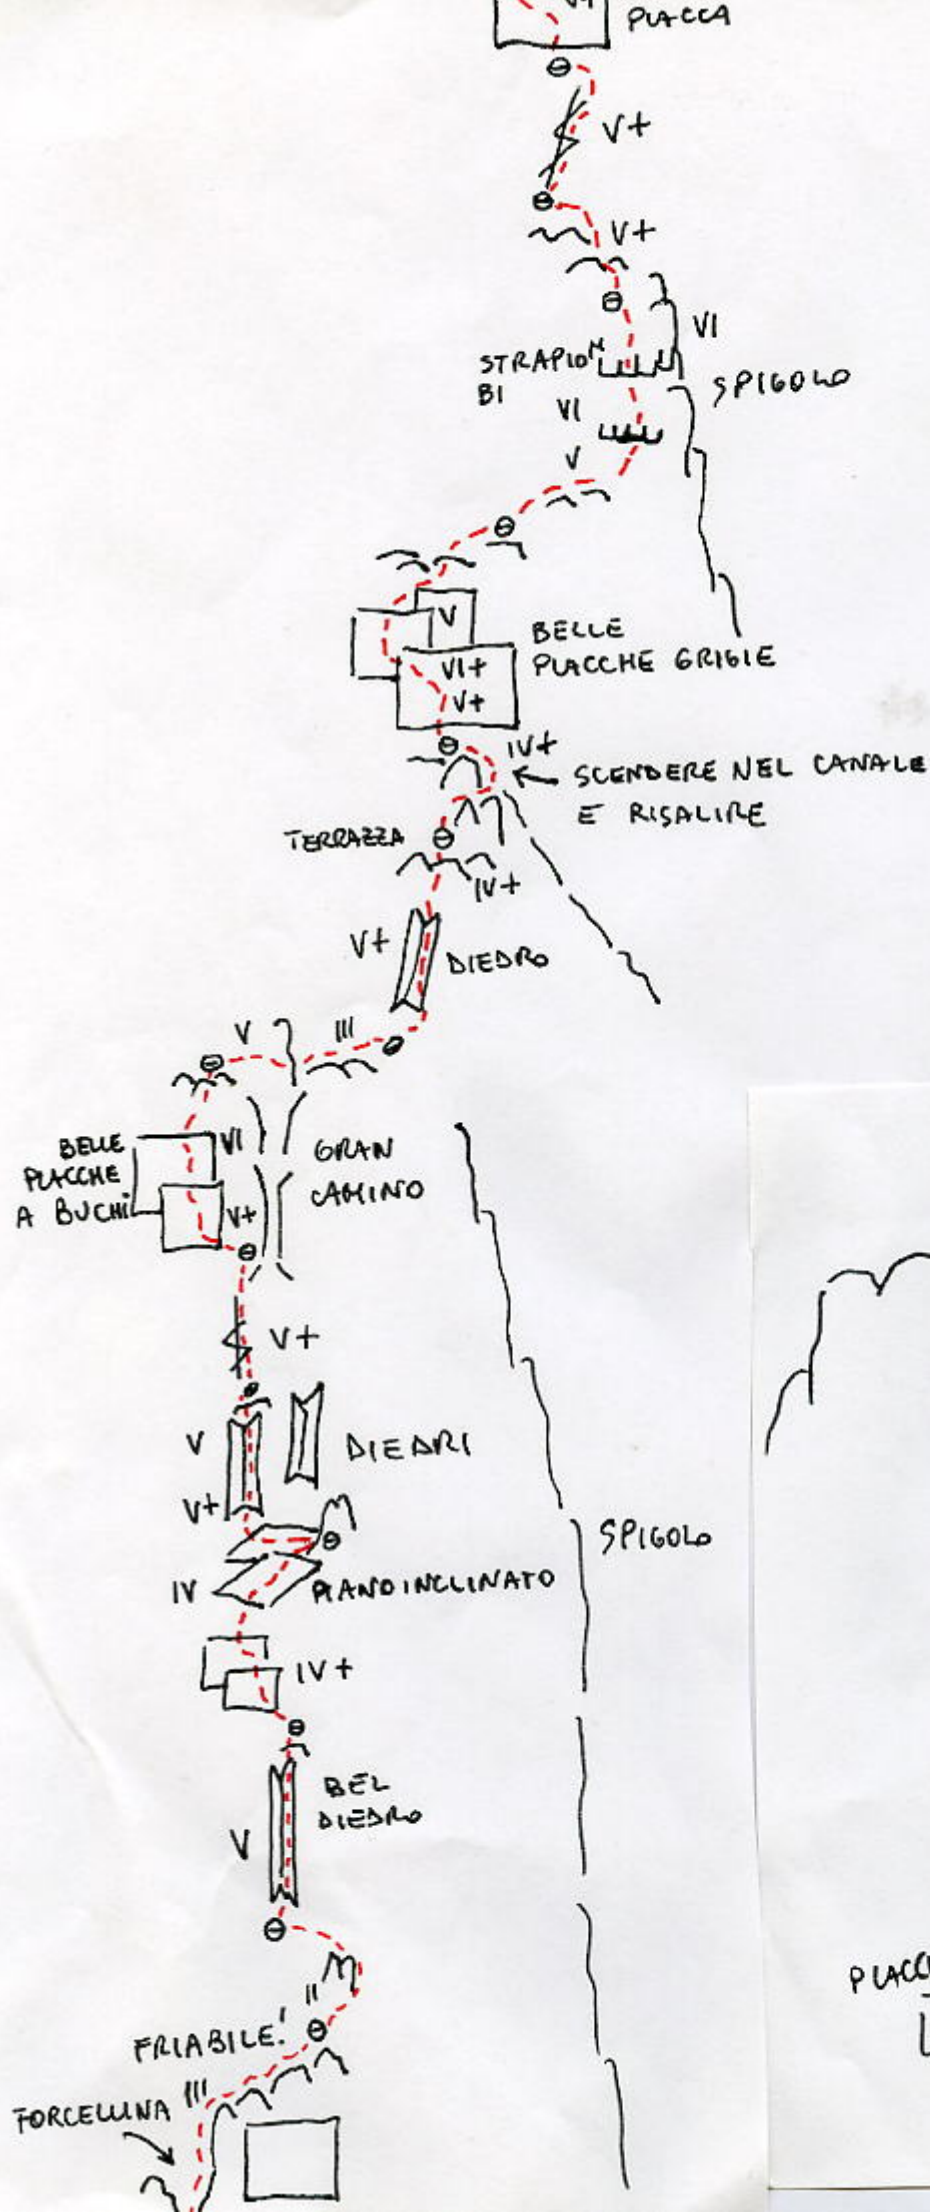 VI
PLACCA
V+
V+
VI
STRAPIOM
BI
SPIGOLO
VI
V
V
BELLE
PLACCHE GRIGIE
VI+
V+
IV+
SCENDERE NEL CANALE
E RISALIRE
TERRAZZA
IV+
V+
DIEDRO
V
III
BELLE
PLACCHE
A BUCHI
VI
GRAN
CAMINO
V+
V+
V
DIEDRI
V+
SPIGOLO
IV
PIANO INCLINATO
IV+
BEL
DIEDRO
V
PLACC
II
FRIABILE!
III
FORCELLINA